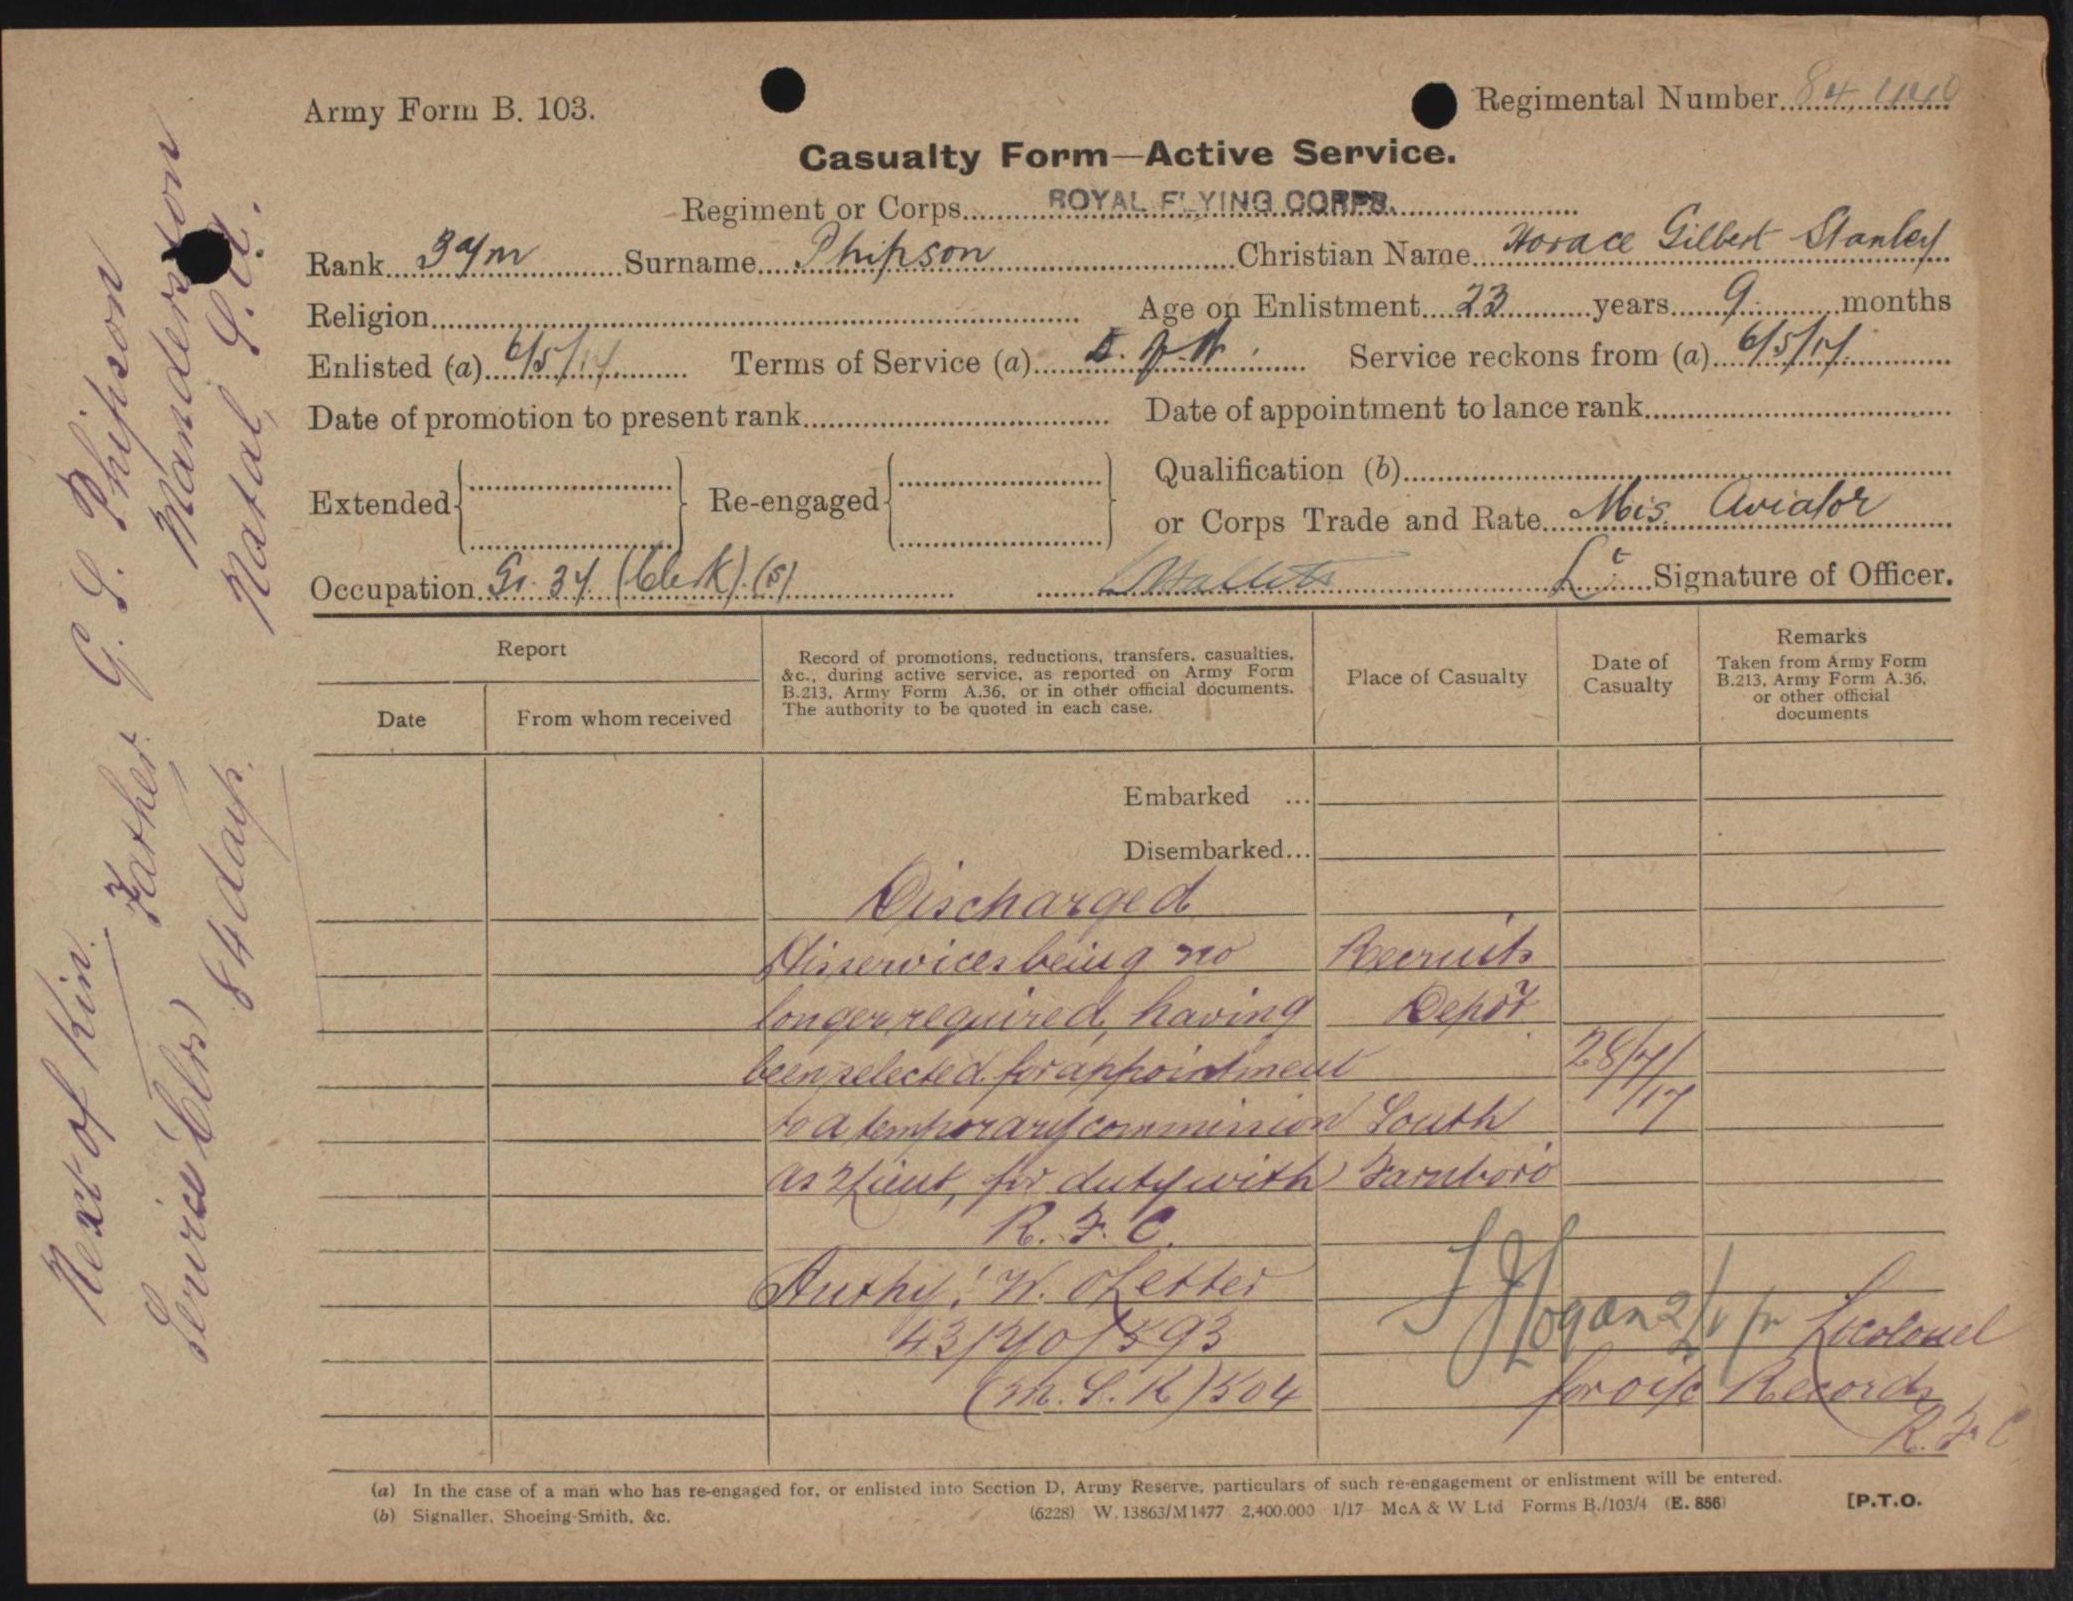 Army Form B. 103.
Regimental Number
Casualty Form—Active Service.
Regiment or Corps ROYAL FLYING CORPS.
Rank 3 a/m Surname Phipson Christian Name Horace Gilbert Stanley
Religion Age on Enlistment 23 years 9 months
Enlisted (a) 6/5/17 Terms of Service (a) D. of W. Service reckons from (a) 6/5/17
Date of promotion to present rank Date of appointment to lance rank
Extended Re-engaged Qualification (b)
or Corps Trade and Rate Mis. Aviator
Occupation Gr. 34 (Clerk) (S) Lt. Signature of Officer.
Report
Date
From whom received
Record of promotions, reductions, transfers, casualties,
&c., during active service, as reported on Army Form
B.213, Army Form A.36, or in other official documents.
The authority to be quoted in each case.
Place of Casualty
Date of
Casualty
Remarks
Taken from Army Form
B.213, Army Form A.36,
or other official
documents
Embarked ...
Disembarked...
Discharged
His services being no Recruits
longer required, having Depôt
been selected for appointment 28/7/
to a temporary commission South /17
as 2/Lieut, for duty with Farnboro
R. F. C.
Authy: W. O Letter
43/RFC/593
(M. S. R) 504
Logan 2/Lt for Lt colonel
for o i/c Records
R. F. C
(a) In the case of a man who has re-engaged for, or enlisted into Section D, Army Reserve, particulars of such re-engagement or enlistment will be entered.
(b) Signaller, Shoeing-Smith, &c.
(6228) W. 13863/M1477 2,400,000 1/17 McA & W Ltd Forms B./103/4 (E. 856)
[P.T.O.
Next of Kin. Father G. S. Phipson
Manderston
Natal, S.A.
Service 84 days.